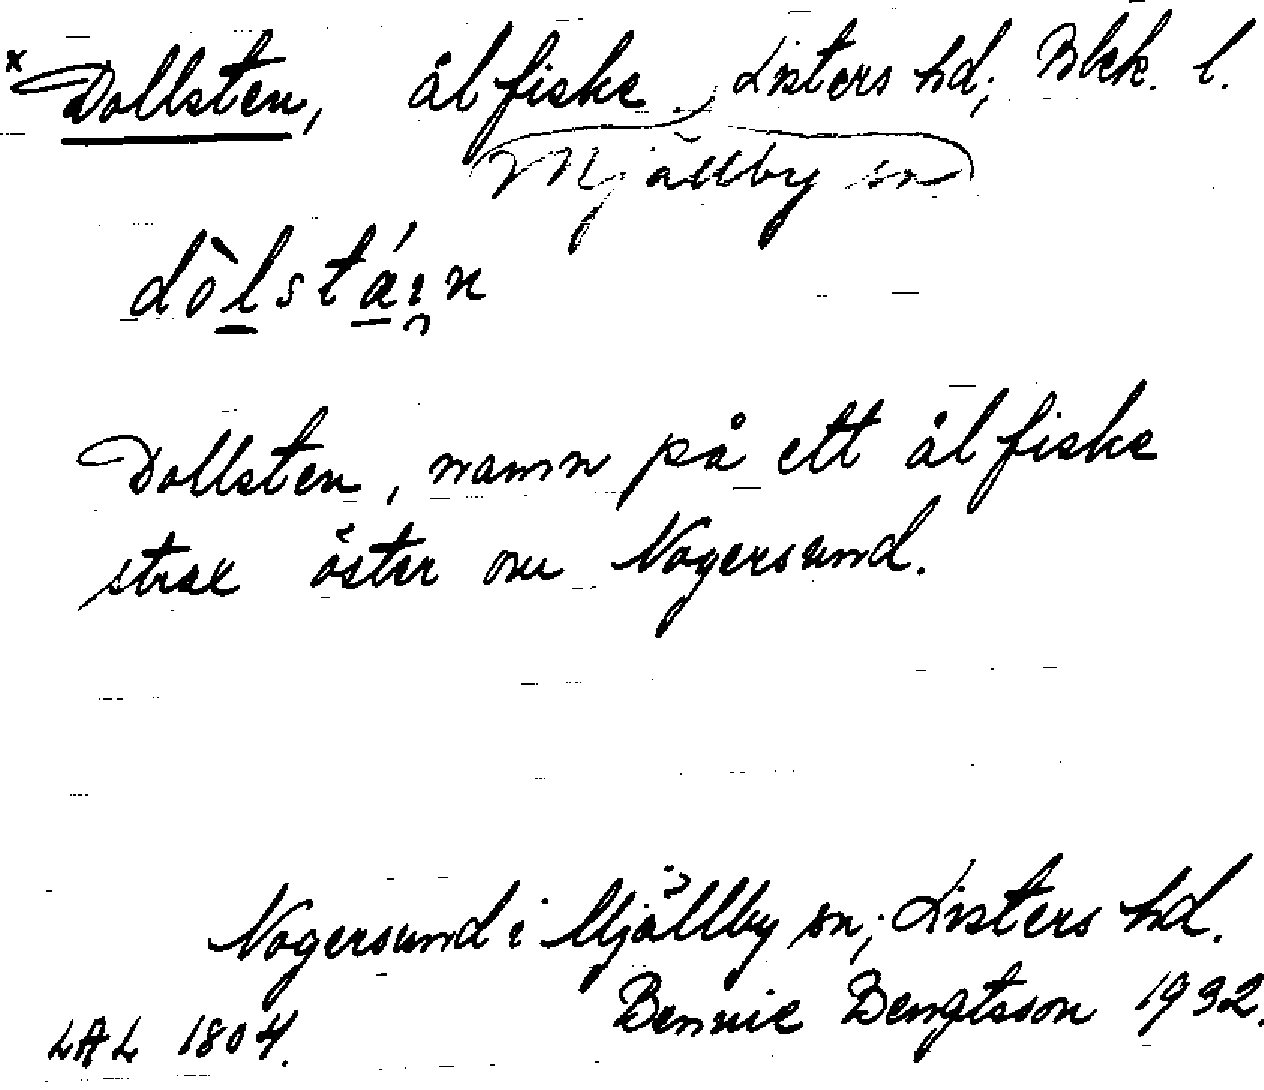 x Dollsten, ålfiske, Listers hd; Blek. l.
Mjällby sn
dòlstáin
Dollsten, namn på ett ålfiske
strax öster om Nogersund.
Nogersund i Mjällby sn; Listers hd.
Bennie Bengtsson 1932.
LAL 1804.